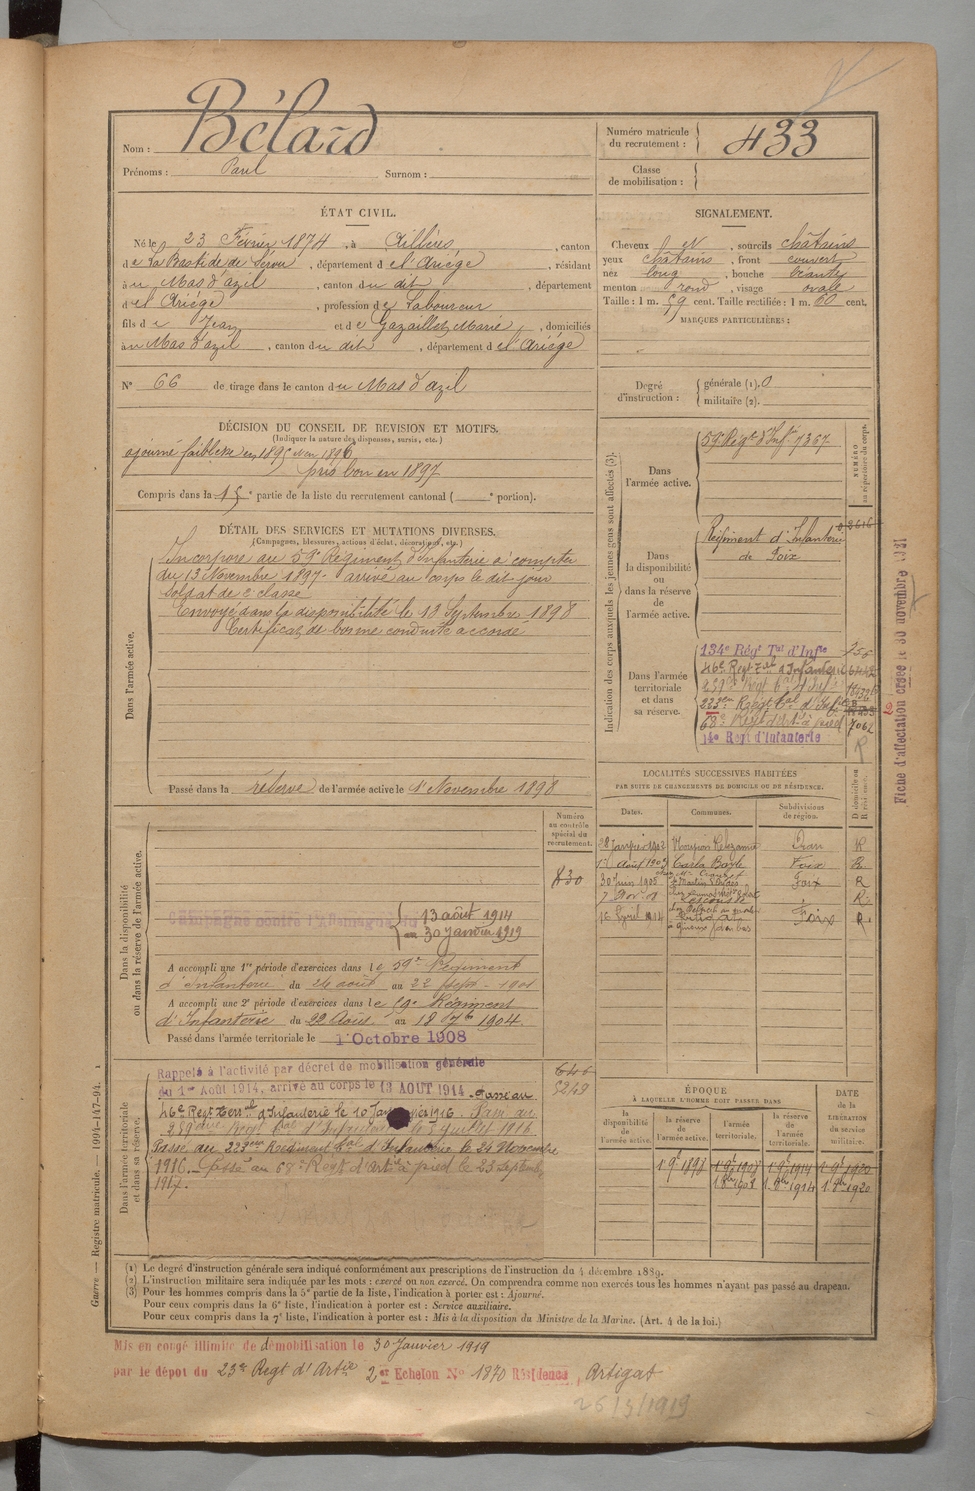 Bélard
Nom :
Prénoms : Paul Surnom :
Numéro matricule du recrutement : 433
Classe de mobilisation :
ÉTAT CIVIL.
Né le 23 Février 1874, à Aillères, canton
de La Bastide de Sérou, département de l'Ariège, résidant
au Mas d'azil, canton du dit, département
de l'Ariège, profession de Laboureur
fils de Jean et de Gazaillet Marie, domiciliés
au Mas d'azil, canton du dit, département de l'Ariège
N° 66 de tirage dans le canton du Mas d'azil
SIGNALEMENT.
Cheveux N, sourcils châtains
yeux châtains, front couvert
nez long, bouche béante
menton rond, visage ovale
Taille : 1 m. 59 cent. Taille rectifiée : 1 m. 60 cent.
MARQUES PARTICULIÈRES :
Degré d'instruction : générale (1). 0
militaire (2).
DÉCISION DU CONSEIL DE REVISION ET MOTIFS.
(Indiquer la nature des dispenses, sursis, etc.)
ajourné faiblesse en 1895 1896
pris bon en 1897
Compris dans la partie de la liste du recrutement cantonal ( portion).
DÉTAIL DES SERVICES ET MUTATIONS DIVERSES.
(Campagnes, blessures, actions d'éclat, décorations, etc.)
Dans l'armée active.
Incorporé au 59e Régiment d'Infanterie à compter
du 13 Novembre 1897. arrivé au corps le dit jour
soldat de 2e classe
Envoyé dans la disponibilité le 13 Septembre 1898
Certificat de bonne conduite accordé
Passé dans la réserve de l'armée active le 1er Novembre 1898
Indication des corps auxquels les jeunes gens sont affectés (3).
NUMÉRO au répertoire du corps.
Dans l'armée active.
59e Régt d'Infie 7367
Dans la disponibilité ou dans la réserve de l'armée active.
Régiment d'Infanterie
de Foix
Dans l'armée territoriale et dans sa réserve.
134e Régt Tal d'Infie
46e Régt Tal d'Infanterie
223em Régt Tal d'Infie
68e Régt d'Artie à pied 7062
14e Regt d'Infanterie
Fiche d'affectation créée le 30 novembre
LOCALITÉS SUCCESSIVES HABITÉES
PAR SUITE DE CHANGEMENTS DE DOMICILE OU DE RÉSIDENCE.
Dates. Communes. Subdivisions de région. D domicile ou R résidence.
28 Janvier 1902 Oran R
1er Août 1903 Carla Bayle Foix R
30 Juin 1905 Foix R
16 Avril 1914 Foix R
Dans la disponibilité ou dans la réserve de l'armée active.
Numéro au contrôle spécial du recrutement.
830
Campagne contre l'Allemagne du 13 août 1914
au 30 janvier 1919
A accompli une 1re période d'exercices dans le 59e Régiment
d'Infanterie du 26 août au 22 Sept. 1901
A accompli une 2e période d'exercices dans le 59e Régiment
d'Infanterie du 22 Août au 18 7bre 1904.
Passé dans l'armée territoriale le 1er Octobre 1908
Dans l'armée territoriale et dans sa réserve.
Rappelé à l'activité par décret de mobilisation générale
du 1er Août 1914, arrivé au corps le 13 AOUT 1914. Passé au
46e Régt Terral d'Infanterie le 10 Janvier 1916. Passé au
259eme Régt Tal d'Infanterie le Juillet 1916
Passé au 223eme Régiment Tal d'Infanterie le 24 Novembre
1916. Passé au 68e Régt d'Artie à pied le 23 Septembre
1917.
ÉPOQUE
À LAQUELLE L'HOMME DOIT PASSER DANS
la disponibilité de l'armée active. la réserve de l'armée active. l'armée territoriale. la réserve de l'armée territoriale. DATE de la LIBÉRATION du service militaire.
1 9e 1898 1 9e 1908 1 9e 1914 1 9e 1920
1 8bre 1908 1 8bre 1914 1 8bre 1920
(1) Le degré d'instruction générale sera indiqué conformément aux prescriptions de l'instruction du 4 décembre 1889.
(2) L'instruction militaire sera indiquée par les mots : exercé ou non exercé. On comprendra comme non exercés tous les hommes n'ayant pas passé au drapeau.
(3) Pour les hommes compris dans la 5e partie de la liste, l'indication à porter est : Ajourné.
Pour ceux compris dans la 6e liste, l'indication à porter est : Service auxiliaire.
Pour ceux compris dans la 7e liste, l'indication à porter est : Mis à la disposition du Ministre de la Marine. (Art. 4 de la loi.)
Guerre — Registre matricule. — 1994-147-94.
Mis en congé illimité de démobilisation le 30 Janvier 1919
par le dépôt du 23e Regt d'Artie 2er Echelon No 1870 Résidence, Artigat
26/3/1919